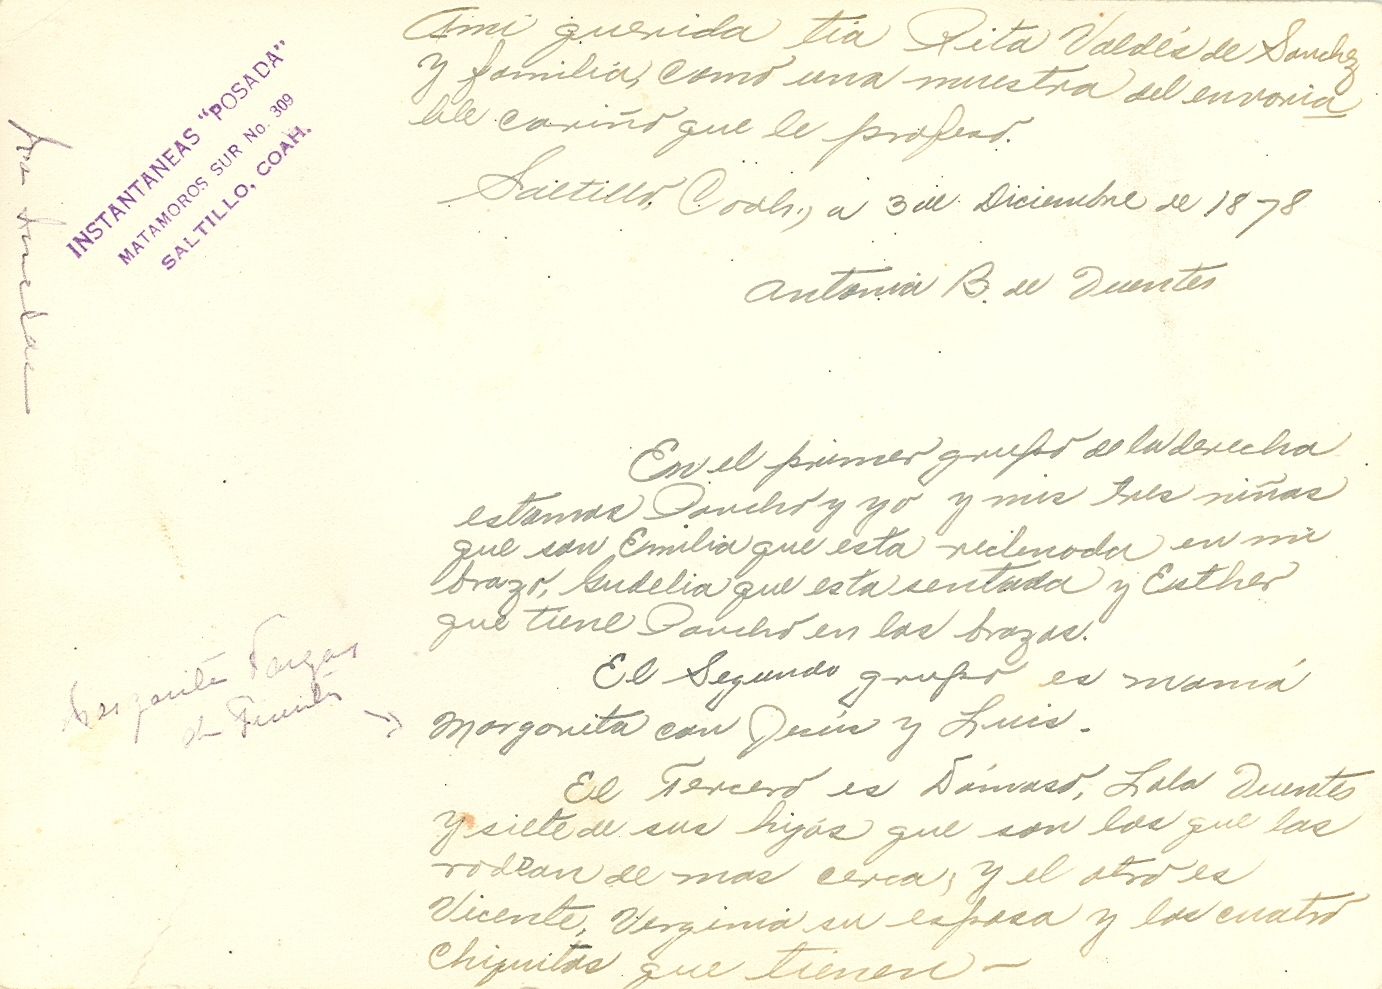 Ami querida tia Rita Valdés de Sanchez
y familia, como una muestra del envoria
ble cariño que le profeso.
Saltillo, Coah., a 3 de Diciembre de 1878
Antonia B. de Duentes
INSTANTANEAS "POSADA"
MATAMOROS SUR No. 309
SALTILLO, COAH.
En el primer grupo de la derecha
estamos Pancho y yo y mis tres niñas
que son Emilia que esta reclinada en mi
brazo, Gudelia que esta sentada y Esther
que tiene Pancho en los brazos.
El Segundo grupo es mamá
Margarita con Jesús y Luis.
Margarita Vargas
de Fuentes
El Tercero es Dámaso, Lola Duentes
y siete de sus hijos que son los que las
rodean de mas cerca, y el otro es
Vicente, Verginia su esposa y los cuatro
Chiquitos que tienen —